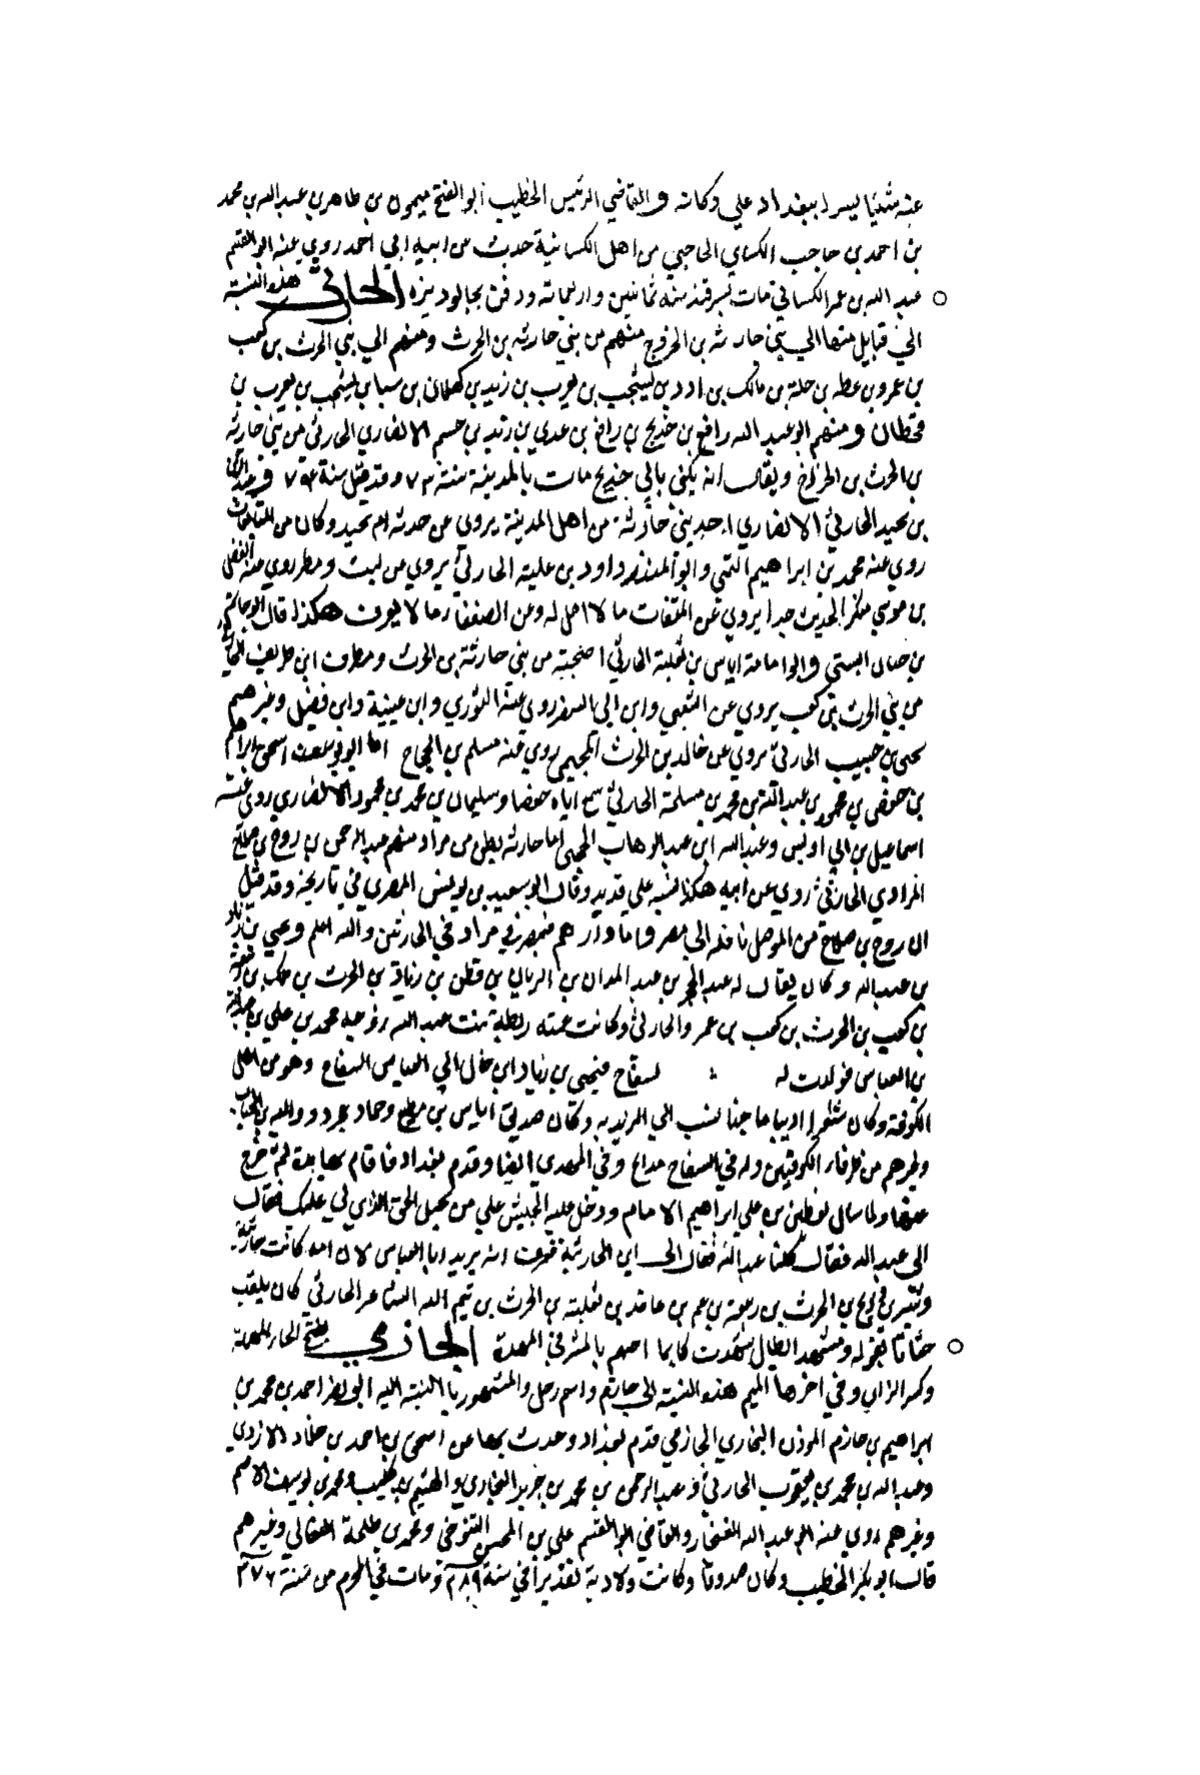 عنه شيئا يسيرا ببغداد علي وكانه والقاضي الرئيس الخطيب ابو الفتح ميمون بن طاهر بن عبد الله بن محمد
بن احمد بن حاجب الكساي الحاجبي من اهل الكسانية حدث من ابيه ابي احمد روي عنه ابو القسم
عبد الله بن عمر الكساني مات بسرقند سنه ثمانين واربعمائه ودفن بجالوديزه الحارثي هذه النسبة
الي قبايل منها الي بني حارثه بن الخزرج منهم من بني حارثه بن الحرث ومنهم الي بني الحرث بن كعب
بن عمرو بن عله بن جلد بن مالك بن ادد بن يشجب بن عريب بن زيد بن كهلان بن سبا بن يشجب بن يعرب بن
قحطان ومنهم ابو عبد الله رافع بن خديج بن رافع بن عدي بن زيد بن جسم الانصاري الحارثي من بني حارثه
بن الحرث بن الخزرج ويقال انه يكنى بابي خديج مات بالمدينة سنة ٧٣ وقد قيل سنة ٧٤ و
بن بجيد الحارثي الانصاري احد بني حارثة من اهل المدينة يروي عن جدته ام بجيد وكان من
روي عنه محمد بن ابراهيم التيمي وابو المنذر داود بن علية الحارثي يروي عن ليث ومطر روي عنه الفضل
بن موسي منكر الحديث جدا يروي عن الثقات ما لا اصل له وعن الضعفا ما لا يعرف هكذا قال ابو حاتم
بن حبان البستي وابو امامة اياس بن ثعلبة الحارثي اصحبته من بني حارثة بن الحرث ومطرف ابن طريف الحارثي
من بني الحرث بن كعب يروي عن الشعبي وابن ابي السفر روي عنه الثوري وابن عيينة وابن فضيل وغيرهم
يحيى بن حبيب الحارثي يروي عن خالد بن الحرث الهجيمي روي عنه مسلم بن الحجاج اما ابو يوسف اسحق بن ابراهيم
بن حفص بن محمود بن عبد الله بن محمد بن مسلمة الحارثي سمع اباه حفصا وسليمان بن محمد بن محمود الانصاري روى عنه
اسماعيل بن ابي اويس وعبد الله ابن عبد الوهاب الحجبي اما حارثه بطن من مراد منهم عبد الرحمن بن روح بن صلاح
المرادي الحارثي روي عن ابيه هكذا نسبه علي قديد وقال ابو سعيد بن يونس المصري في تاريخه وقد قيل
ان روح بن صلاح من الموصل ناقله الى مصر واما دارهم فبمصر في مراد في الحارثيين والله اعلم ويحيي بن زياد
بن عبد الله وكان يقال له عبد الحجر بن عبد المدان بن الريان بن قطن بن زياد بن الحرث بن ملك بن ربيعة
بن كعب بن الحرث بن كعب بن عمرو الحارثي وكانت عمته ريطة بنت عبد الله زوجة محمد بن علي بن عبد الله
بن العباس فولدت له السفاح فيحيى بن زياد ابن خال ابي العباس السفاح وهو من اهل
الكوفة وكان شاعرا اديبا ماجنا نسب الي الزندقة وكان صديق اياس بن مطيع وحماد عجرد ووالبة بن الحباب
وغيرهم من ظرفاء الكوفيين وله في السفاح مدايح وفي المهدي ايضا وقدم بغداد فاقام بها مدة ثم خرج
عنها ولما سال يقطين بن علي ابراهيم الامام ودخل عليه الحبس علي من تحيل الحق الذي لي عليك فقال
الى عبد الله فقال كلنا عبد الله فقال الى ابن الحارثية فعرف انه يريد ابا العباس لان امه كانت حارثية
و بن الحرث بن ربيعة بن عم بن عائد بن ثعلبة بن الحرث بن تيم الله الشاعر الحارثي كان يلقب
بقوله ومشهد ابطال شهدت كانما احمهم بالمشرفي المهند الحازمي بفتح الحاء المهملة
وكسر الزاي وفي اخرها الميم هذه النسبة الي حازم واسم رجل والمشهور بالنسبة اليه ابو نصر احمد بن محمد بن
ابراهيم بن حازم الموذن البخاري الحازمي قدم بغداد وحدث بها عن اسحق بن احمد بن خلف الازدي
وعبد الله بن محمد بن يعقوب الحارثي وعبد الرحمن بن محمد بن جرير البخاري والهيثم بن كليب ومحمد بن يوسف الاصم
وغيرهم روي عنه ابو عبد الله الغنجار والقاضي ابو القسم علي بن المحسن التنوخي ومحمد بن طلحة النعالي وغيرهم
قال ابو بكر الخطيب وكان صدوقا وكانت ولادته تقديرا في سنة ٢٨٩ ومات في المحرم من سنة ٣٧٦